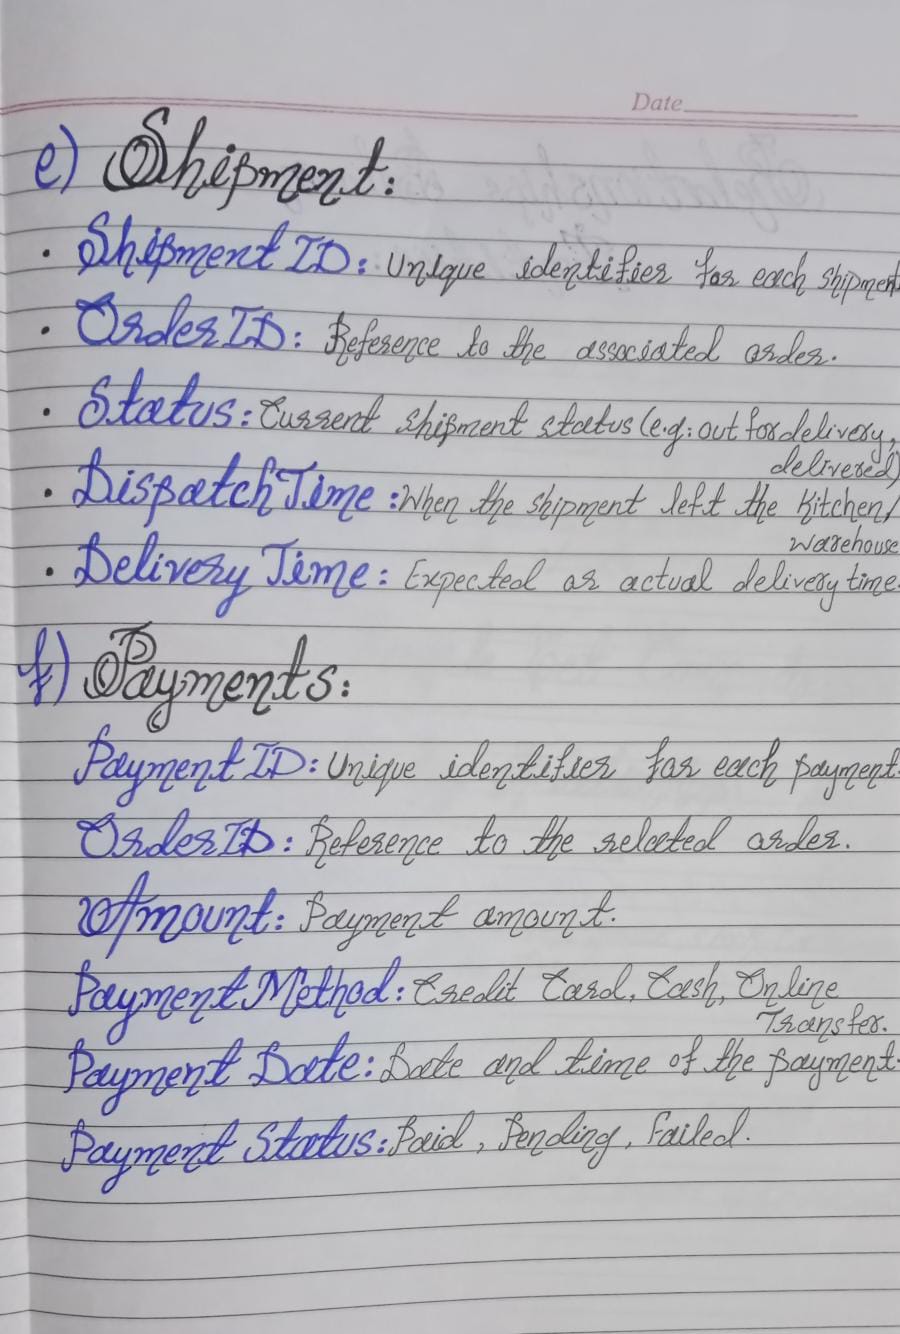 Date
e) Shipment:
• Shipment ID: Unique identifier for each shipment
• Order ID: Reference to the associated order.
• Status: Current shipment status (e.g: out for delivery,
delivered)
• Dispatch Time: When the shipment left the Kitchen/
warehouse
• Delivery Time: Expected or actual delivery time.
f) Payments:
Payment ID: Unique identifier for each payment.
Order ID: Reference to the related order.
Amount: Payment amount.
Payment Method: Credit Card, Cash, Online
Transfer.
Payment Date: Date and time of the payment.
Payment Status: Paid, Pending, Failed.